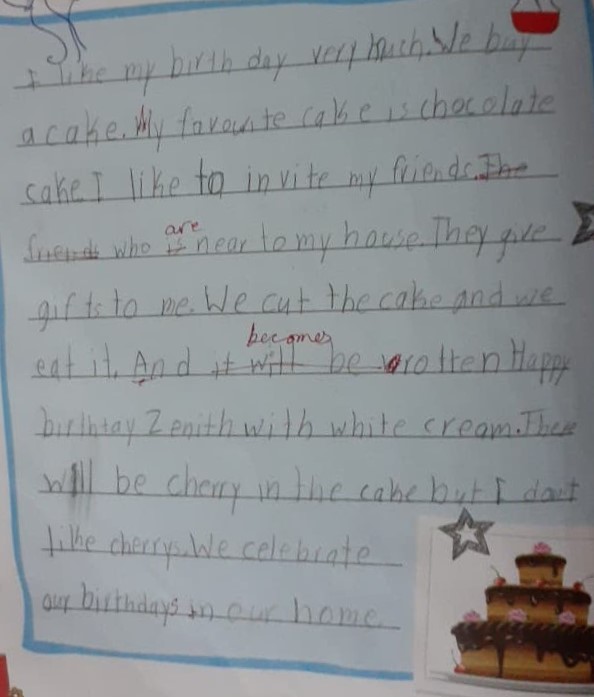 I like my birth day very much.We buy
a cake.My favourite cake is chocolate
cake I like to invite my friends.The
friends who is near to my house.They give
are
gifts to me.We cut the cake and we
eat it. And it will be wrotten Happy
becomes
birthtay Zenith with white cream.There
will be cherry in the cake but I don't
like cherrys.We celebrate
our birthdays in our home.